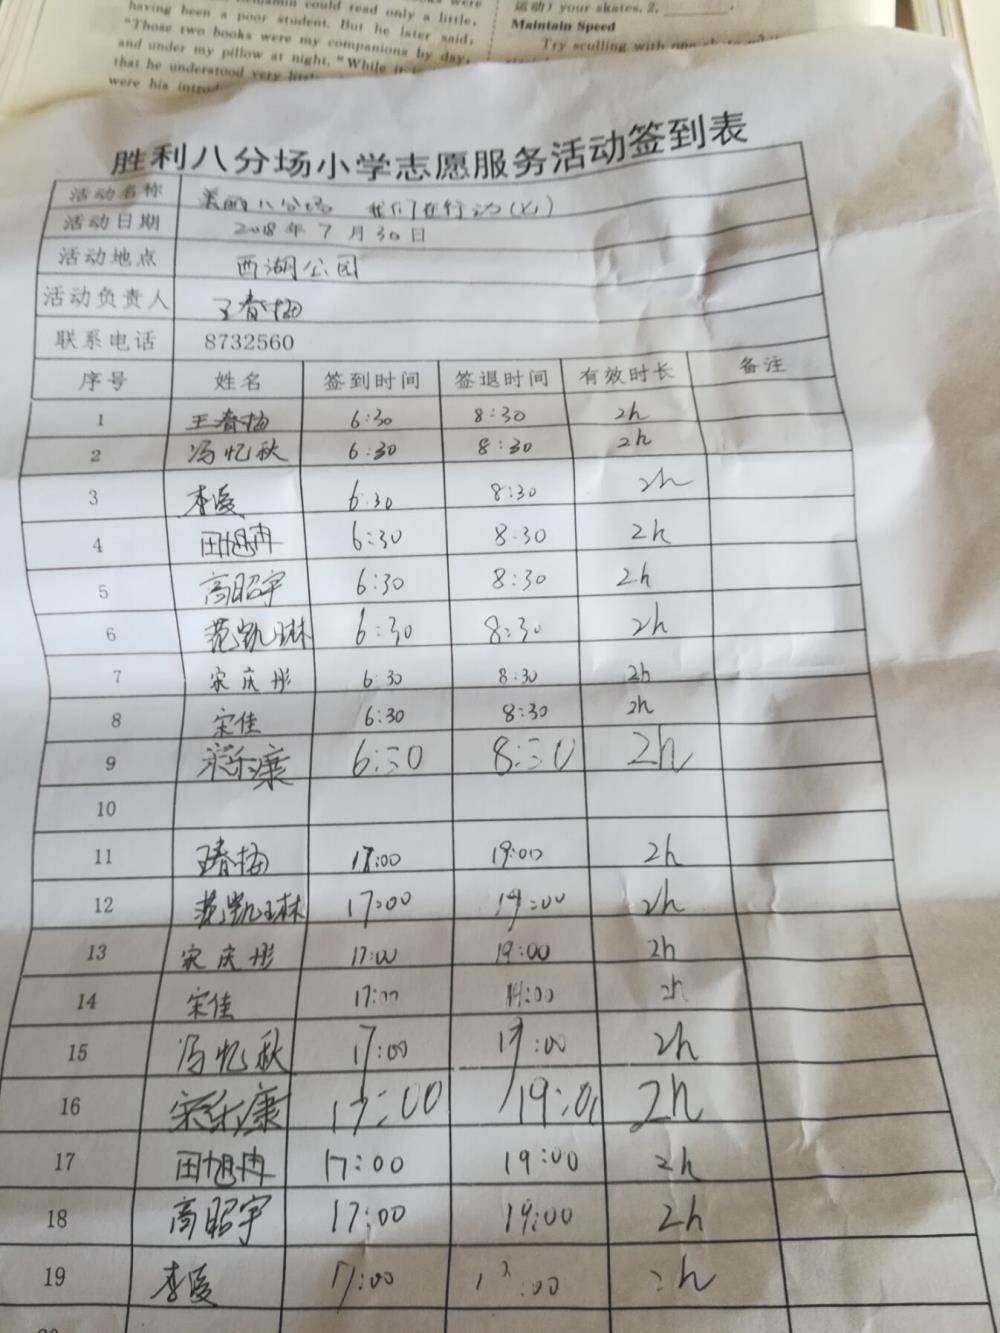 having been a poor student. But he later said,
"Those two books were my companions by day,
and under my pillow at night. "While it
that he understood very
were his
运动) your skates. 2.
Maintain Speed
Try sculling with one
胜利八分场小学志愿服务活动签到表
活动名称 美丽八分场 我们在行动(七)
活动日期 2018年7月30日
活动地点 西湖公园
活动负责人 王春梅
联系电话 8732560
序号 姓名 签到时间 签退时间 有效时长 备注
1 王春梅 6:30 8:30 2h
2 冯忆秋 6:30 8:30 2h
3 李 6:30 8:30 2h
4 田旭冉 6:30 8:30 2h
5 高昭宇 6:30 8:30 2h
6 范凯琳 6:30 8:30 2h
7 宋庆彤 6:30 8:30 2h
8 宋佳 6:30 8:30 2h
9 宋乐康 6:30 8:30 2h
10
11 王春梅 17:00 19:00 2h
12 范凯琳 17:00 19:00 2h
13 宋庆彤 17:00 19:00 2h
14 宋佳 17:00 19:00 2h
15 冯忆秋 17:00 19:00 2h
16 宋乐康 17:00 19:00 2h
17 田旭冉 17:00 19:00 2h
18 高昭宇 17:00 19:00 2h
19 李 17:00 :00 2h